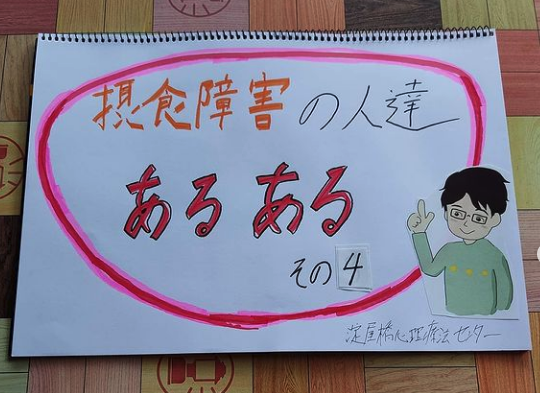 摂食障害の人達
あるある
その4
淀屋橋心理療法センター